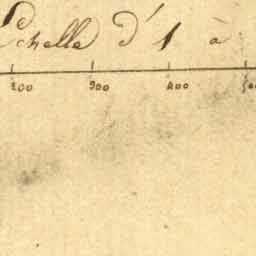 Echelle d'1 à
200 300 400 500